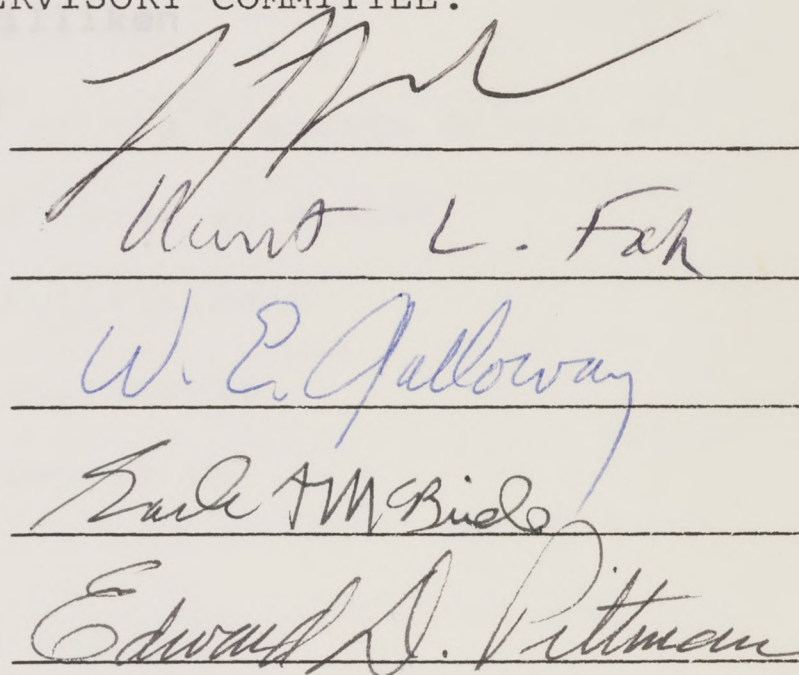 ERVISORY COMMITTEE:
L. Fah
W. E. Galloway
Earle F McBride
Edward D. Pittman